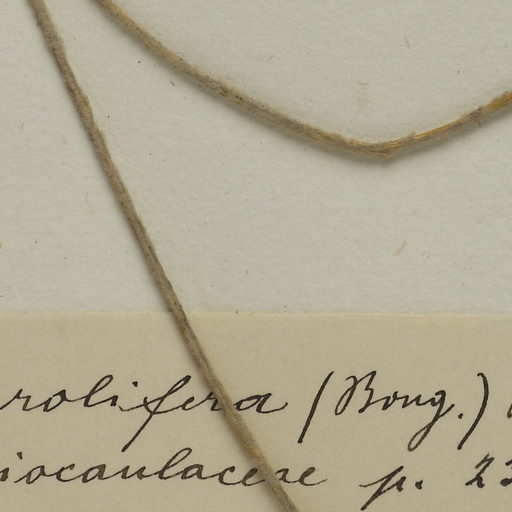 rolifera (Bong.)
iocaulaceae p. 22